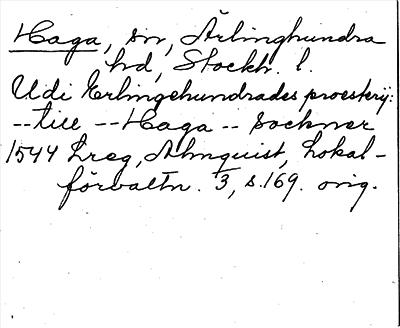 Haga, sn, Ärlinghundra
hd, Stockh. l.
Udi Erlingehundrades proesterij:
-- till -- Haga -- Sochner
1544 Lreg, Almquist, Lokal-
förvaltn. 3, s. 169. orig.